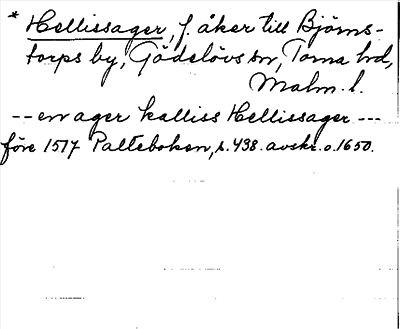 * Hellissager, f. åker till Björns-
torps by, Gödelövs sn, Torna hd,
Malm. l.
-- en ager kalliss Hellissager ---
före 1517 Palteboken, s. 438. avskr. o. 1650.